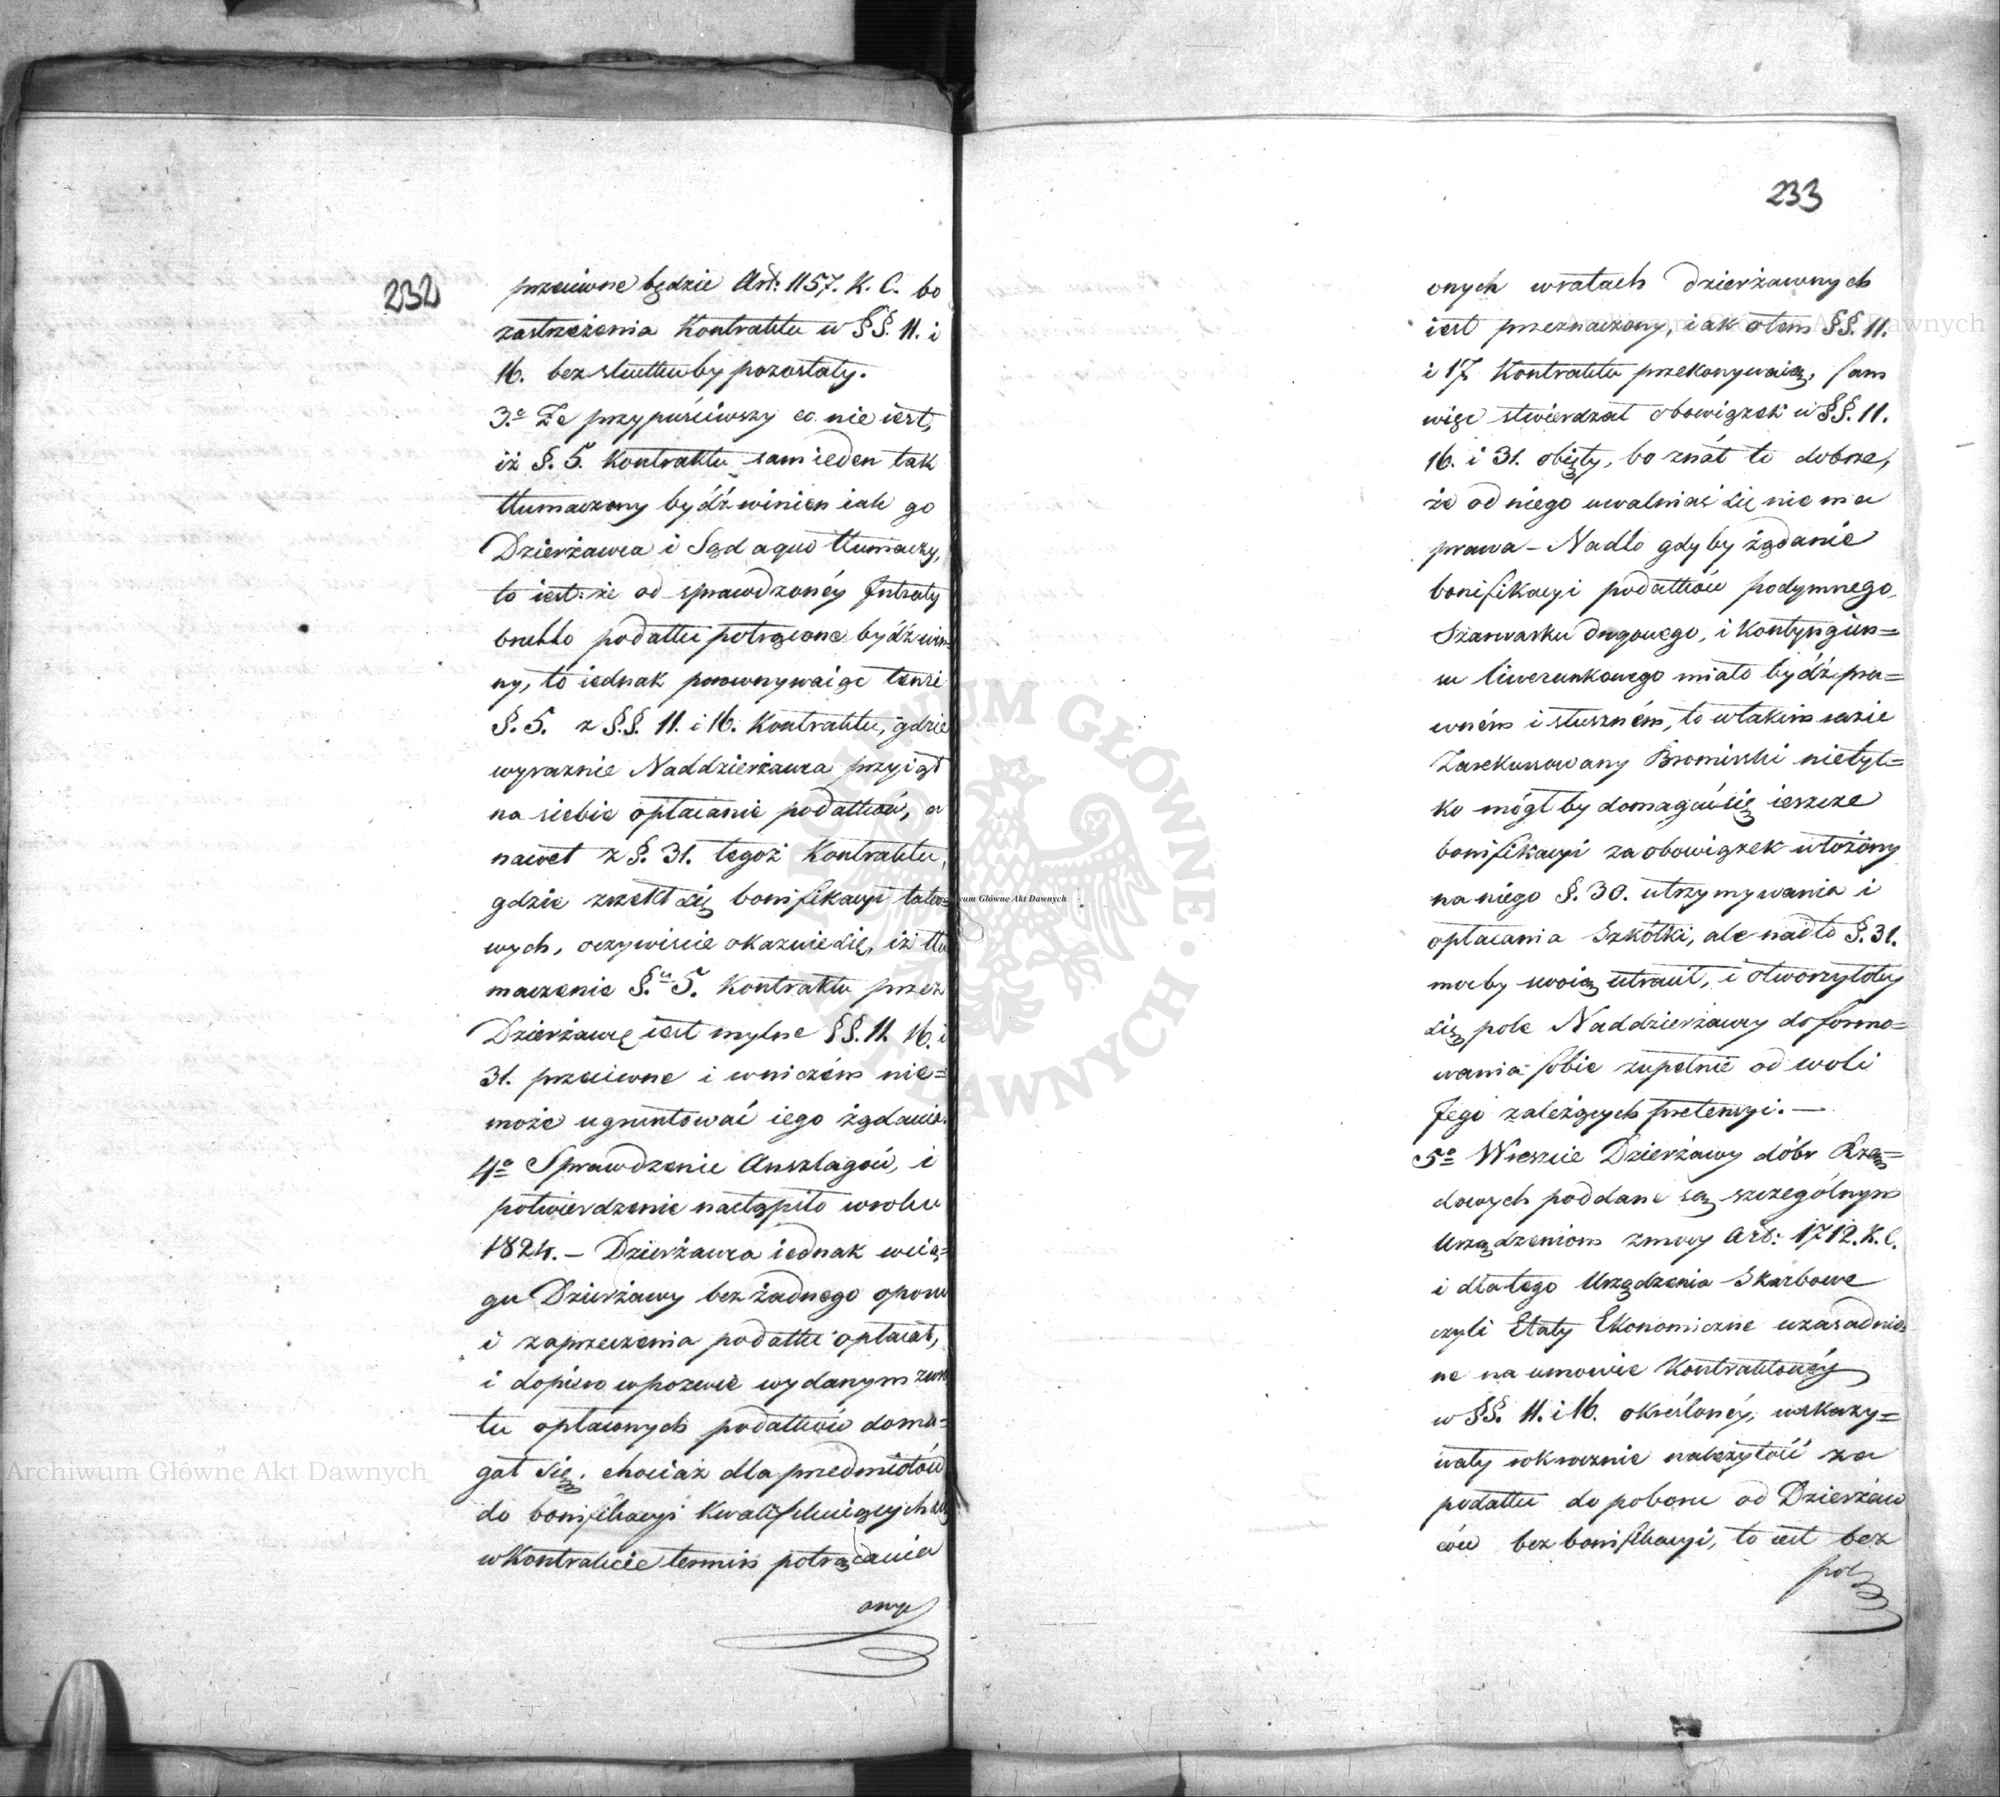 232
przeciwne będzie Art: 1157. K. C. bo
zastrzeżenia Kontraktu w §§. 11. i
16. bez skutku by pozostały.
3o Że przypuściwszy co nie iest,
iż §. 5. Kontraktu sam ieden tak
tłumaczony bydź winien iak go
Dzierżawca i Sąd aquo tłumaczy,
to iest: że od sprawdzonéy Intraty
brutto podatki potrącone bydź win=
ny, to iednak porownywaiąc tenże
§. 5. z §.§. 11. i 16. Kontraktu, gdzie
wyraznie Naddzierżawca przyiął
na siebie opłacanie podatków, a
nawet z §. 31. tegoż Kontraktu,
gdzie zrzekł się bonifikacyi tako=
wych, oczywiście okazuie się, iż tłu
maczenie §.u 5. Kontraktu przez
Dzierżawcę iest mylne §§. 11. 16. i
31. przeciwne i wniczém nie=
może ugruntować iego żądania.
4o Sprawdzenie Anszlagów, i
potwierdzenie nastąpiło wroku
1824. – Dzierżawca iednak wcią=
gu Dzierżawy bez żadnego oporu
i zaprzeczenia podatki opłacał,
i dopiero wpozwie wydanym zwro
tu opłaconych podatków doma=
gał się, chociaż dla przedmiotów
do bonifikacyi kwalifikuiących się
w Kontrakcie termin potrącania
onych
233
onych wratach dzierżawnych
iest przeznaczony, iak otem §§. 11.
i 17. Kontraktu przekonywaią, sam
więc stwierdzał obowiązek w §§. 11.
16. i 31. obięty, bo znał to dobrze,
że od niego uwalniać się nie ma
prawa – Nadto gdyby żądanie
bonifikacyi podatków podymnego,
Szarwarku drogowego, i Kontyngien=
su liwerunkowego miało bydź pra=
wném i słuszném, to wtakim razie
Zarekursowany Bromirski nietyl=
ko mógłby domagać się ieszcze
bonifikacyi za obowiązek włożony
na niego §. 30. utrzymywania i
opłacania Szkółki, ale nadto §. 31.
moc by swoią utracił, i otworzyłoby
się pole Naddzierżawcy do formo=
wania sobie zupełnie od woli
Jego zależących pretensyi. —
5o Wreszcie Dzierżawy dóbr Rzą=
dowych poddane są szczególnym
Urządzeniom zmocy Art: 1712. K. C.
i dlatego Urządzenia Skarbowe
czyli Etaty Ekonomiczne uzasadnio=
ne na umowie Kontraktowéy
w §§. 11. i 16. określonéy, wskazy=
wały rokrocznie należytość za
podatki do poboru od Dzierżaw
ców bez bonifikacyi, to iest bez